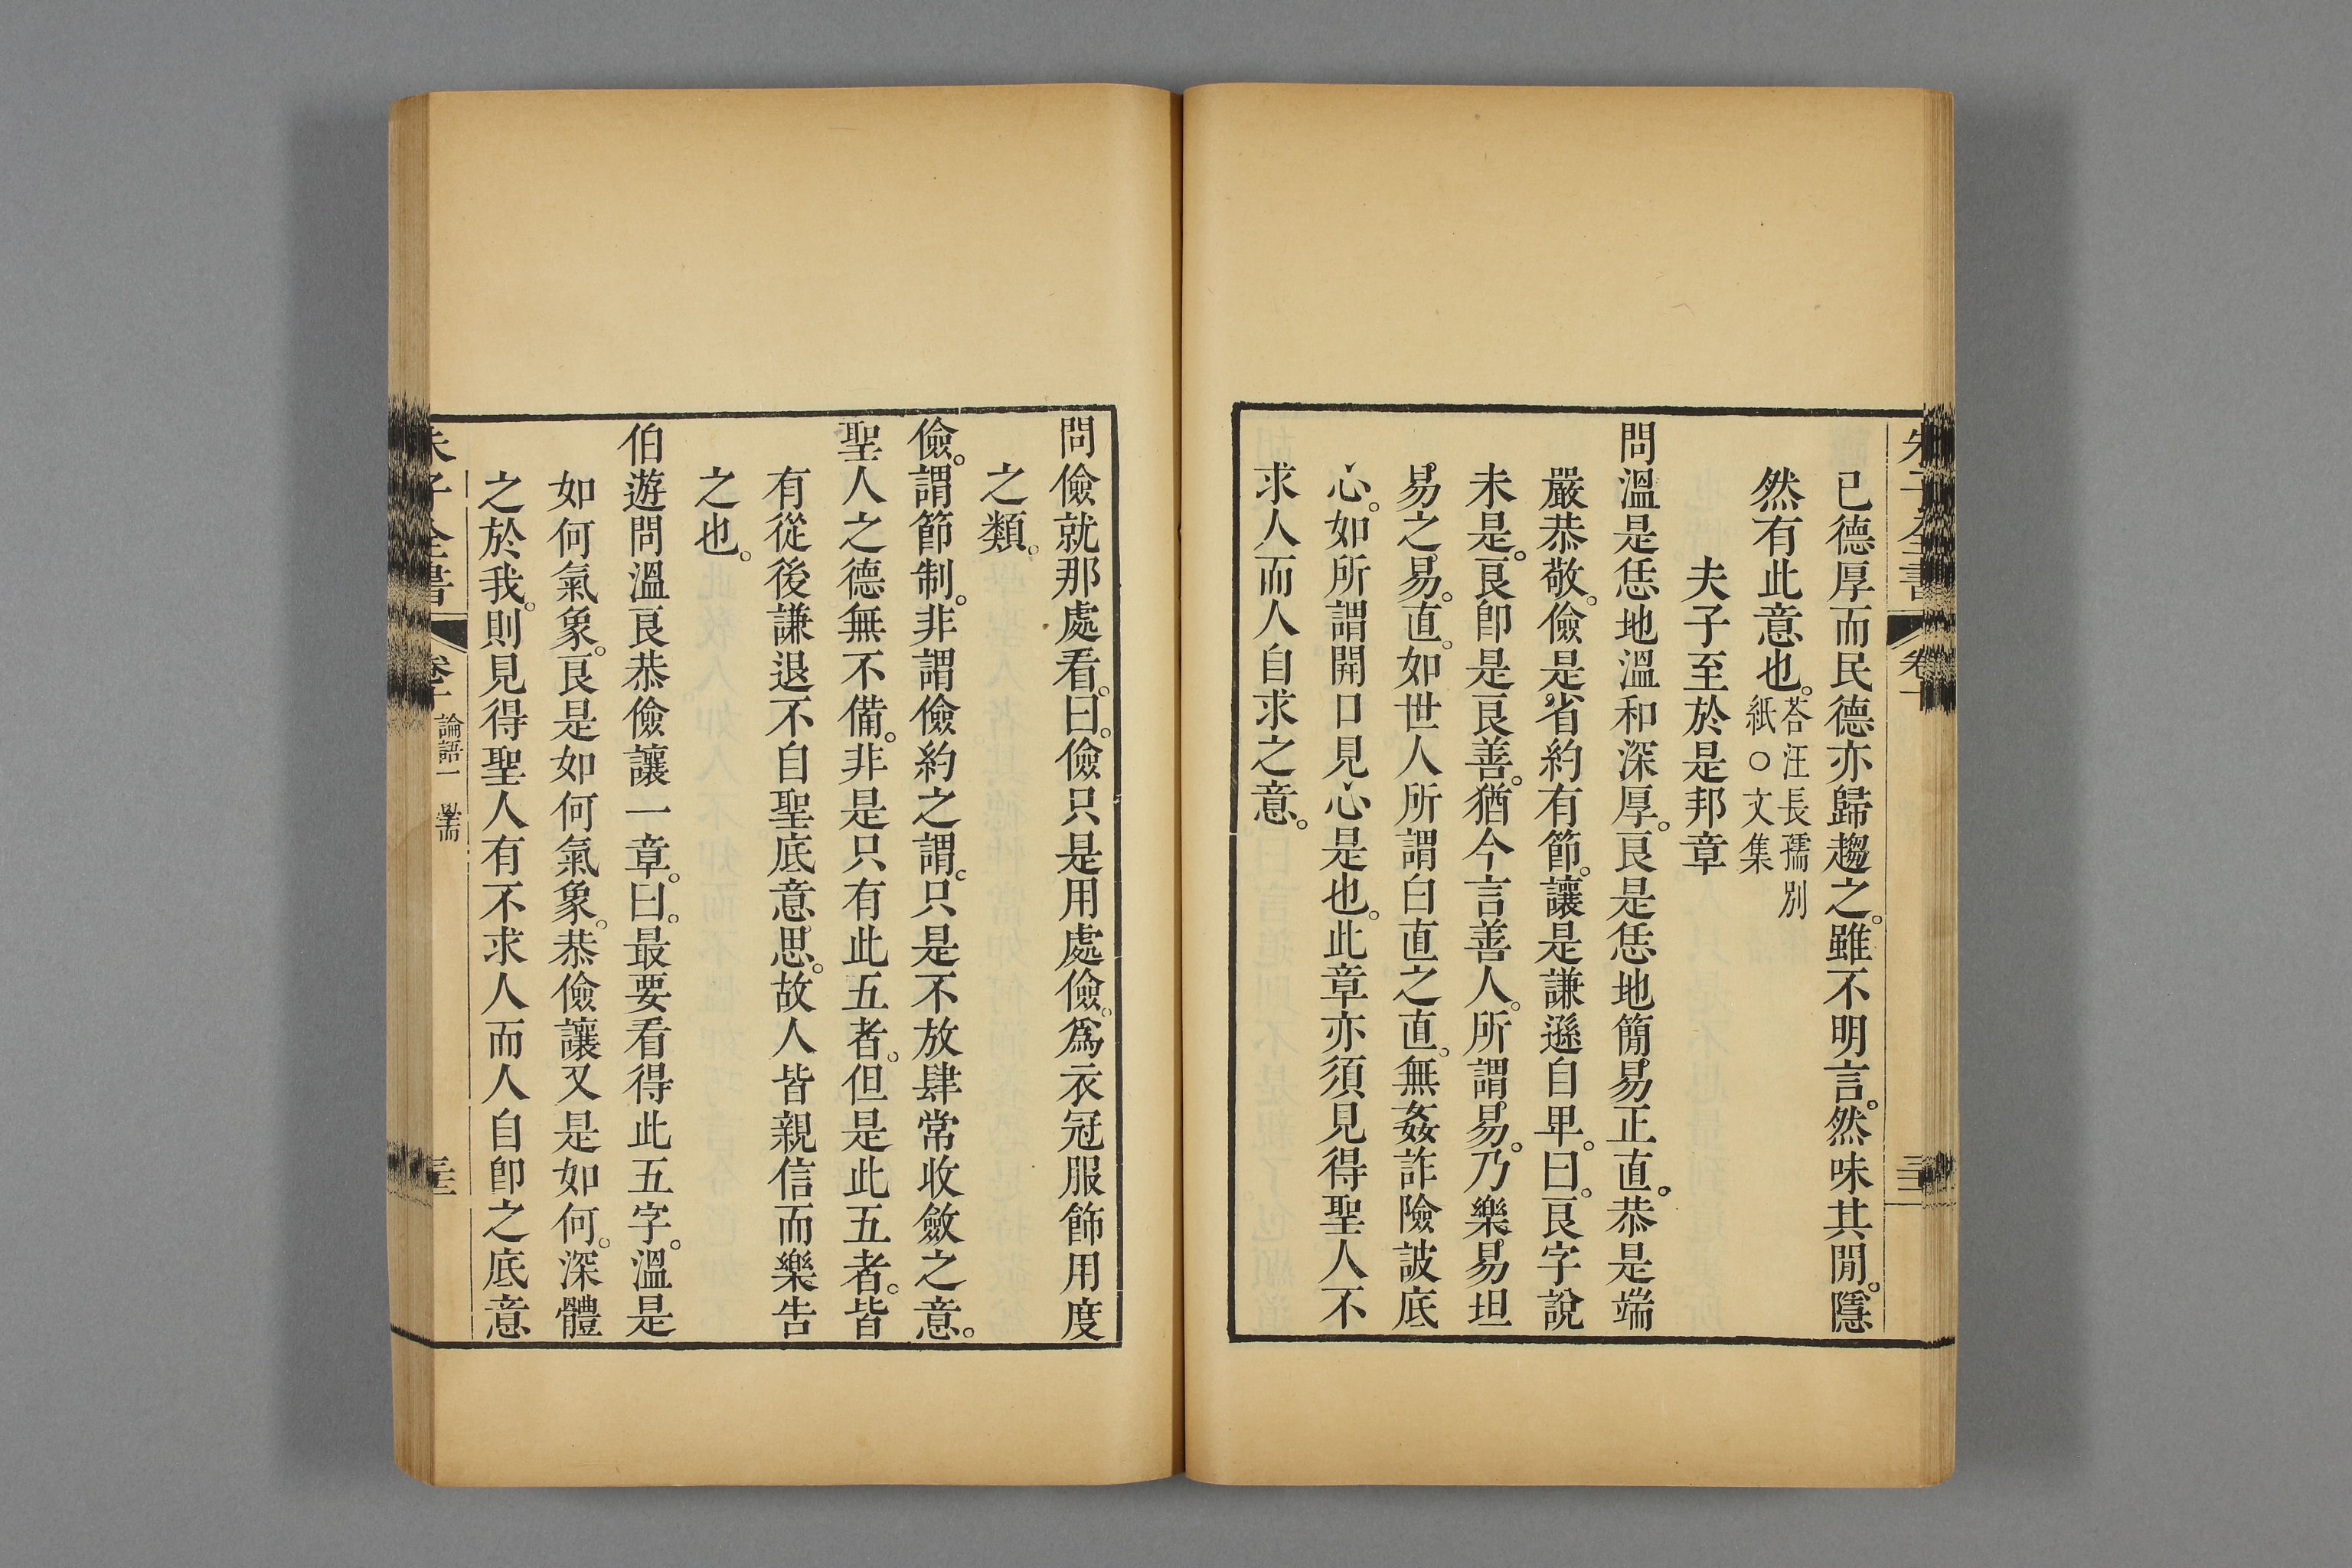 已德厚而民德亦歸趨之。雖不明言。然味其閒。隱
然有此意也。答汪長孺別
紙○文集
夫子至於是邦章
問溫是恁地溫和深厚。良是恁地簡易正直。恭是端
嚴恭敬。儉是省約有節。讓是謙遜自卑。曰。良字說
未是。良卽是良善。猶今言善人。所謂易。乃樂易坦
易之易。直。如世人所謂白直之直。無姦詐險詖底
心。如所謂開口見心是也。此章亦須見得聖人不
求人而人自求之意。
問儉就那處看。曰。儉只是用處儉。爲衣冠服飾用度
之類。
儉。謂節制。非謂儉約之謂。只是不放肆常收斂之意。
聖人之德無不備。非是只有此五者。但是此五者。皆
有從後謙退不自聖底意思。故人皆親信而樂告
之也。
伯遊問溫良恭儉讓一章。曰。最要看得此五字。溫是
如何氣象。良是如何氣象。恭儉讓又是如何。深體
之於我。則見得聖人有不求人而人自卽之底意
朱子全書
論語一 學而